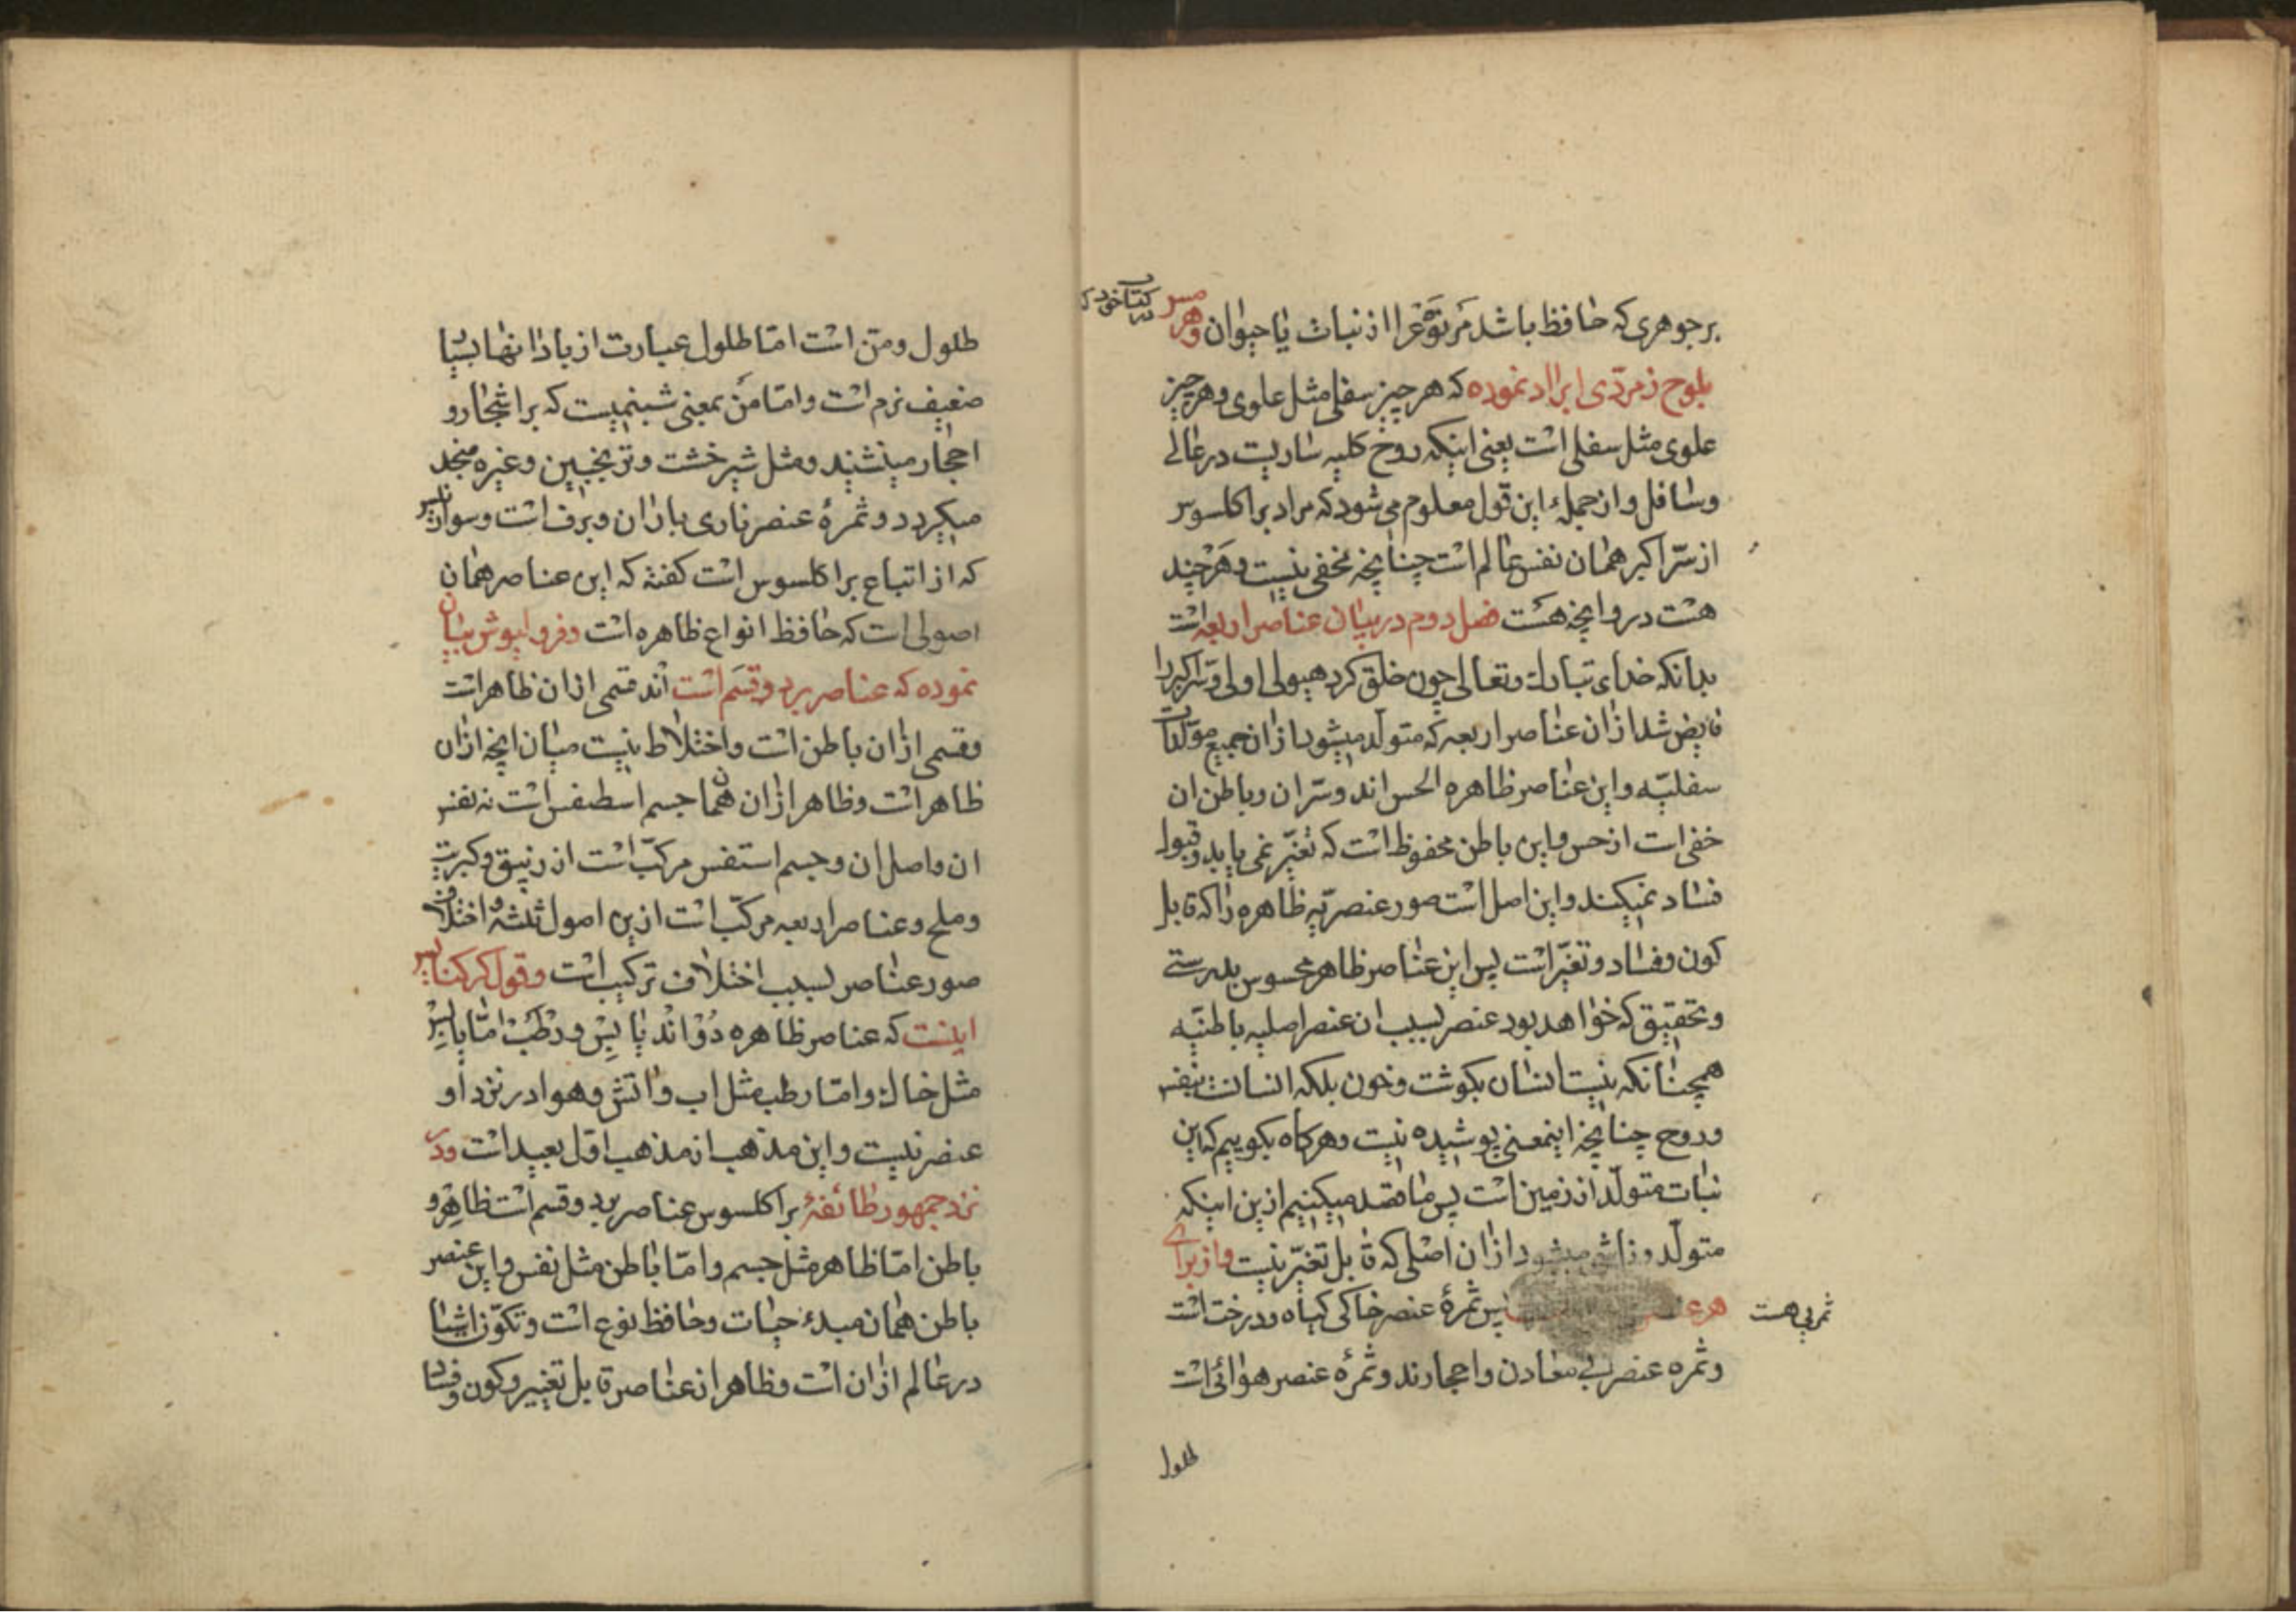 بر جوهری که حافظ باشد مر نوعرا از نبات یا حیوان وهرمس در کتاب خود که
بلوح زمردی ایراد نموده که هر چیز سفلی مثل علوی وهر چیز
علوی مثل سفلی است یعنی اینکه روح کلیه ساریست در عالی
وسافل واز جملهٔ این قول معلوم می شود که مراد براکلسوس
از سر اکبر همان نفس عالم است چنانچه مخفی نیست وهر چند
هست در وانچه هست فصل دوم در بیان عناصر اربعه است
بدانکه خدای تبارک وتعالی چون خلق کرد هیولی اولی وسر اکبر را
فایض شد ازان عناصر اربعه که متولد میشود ازان جمیع مولدات
سفلیّه واین عناصر ظاهره الحس اند وسرّ ان وباطن ان
خفی است از حس واین باطن محفوظ است که تغیّر نمی یابد وقبول
فساد نمیکند واین اصل است صور عنصریّه ظاهره را که قابل
کون وفساد وتغیّر است پس این عناصر ظاهر محسوس بدرستی
وتحقیق که خواهد بود عنصر بسبب ان عنصر اصلیه باطنیّه
همچنانکه نیست انسان بکوشت وخون بلکه انسانست بنفس
وروح چنانچه اینمعنی پوشیده نیست وهرکاه بکوییم که این
نبات متولّد از زمین است پس ما قصد میکنیم ازین اینکه
متولّد وناشی میشود ازان اصلی که قابل تغیّر نیست واز برای
هر ثمری هست پس ثمرهٔ عنصر خاکی کیاه ودرخت است
وثمره عنصر ابی معادن واحجارند وثمرهٔ عنصر هوائی است
طلول
طلول ومن است امّا طلول عبارت از بادانها بسیا
ضعیف نرم است وامّا منّ بمعنی شبنمیست که بر اشجار و
احجار مینشیند ومثل شیرخشت وترنجبین وغیره منجمد
میکردد وثمرهٔ عنصر ناری باران وبرف است وسوارنیس
که از اتباع براکلسوس است کفته که این عناصر همان
اصولی است که حافظ انواع ظاهره است وفروایوش بیان
نموده که عناصر بر دو قسم است اند قسمی ازان ظاهر است
وقسمی ازان باطن است واختلاط نیست میان انچه ازان
ظاهر است وظاهر ازان همان جسم اسطقس است نه نفس
ان واصل ان وجسم استقس مرکّب است از زیبق وکبریت
وملح وعناصر اربعه مرکّب است ازین اصول ثلثه واختلاف
صور عناصر بسبب اختلاف ترکیب است وقول کرکتانیس
اینست که عناصر ظاهره دُوْ انْد یٰا بِسْ ورَطْبْ امّا یابِسْ
مثل خاک وامّا رطب مثل اب واتش وهوا در نزد او
عنصر نیست واین مذهب از مذهب اوّل بعید است ودر
نزد جمهور طائفهٔ براکلسوس عناصر بر دو قسم است ظاهر و
باطن امّا ظاهر مثل جسم وامّا باطن مثل نفس واین عنصر
باطن همان مبدء حیات وحافظ نوع است وتکوّن اشیا
در عالم ازان است وظاهر از عناصر قابل تغییر وکون وفسا